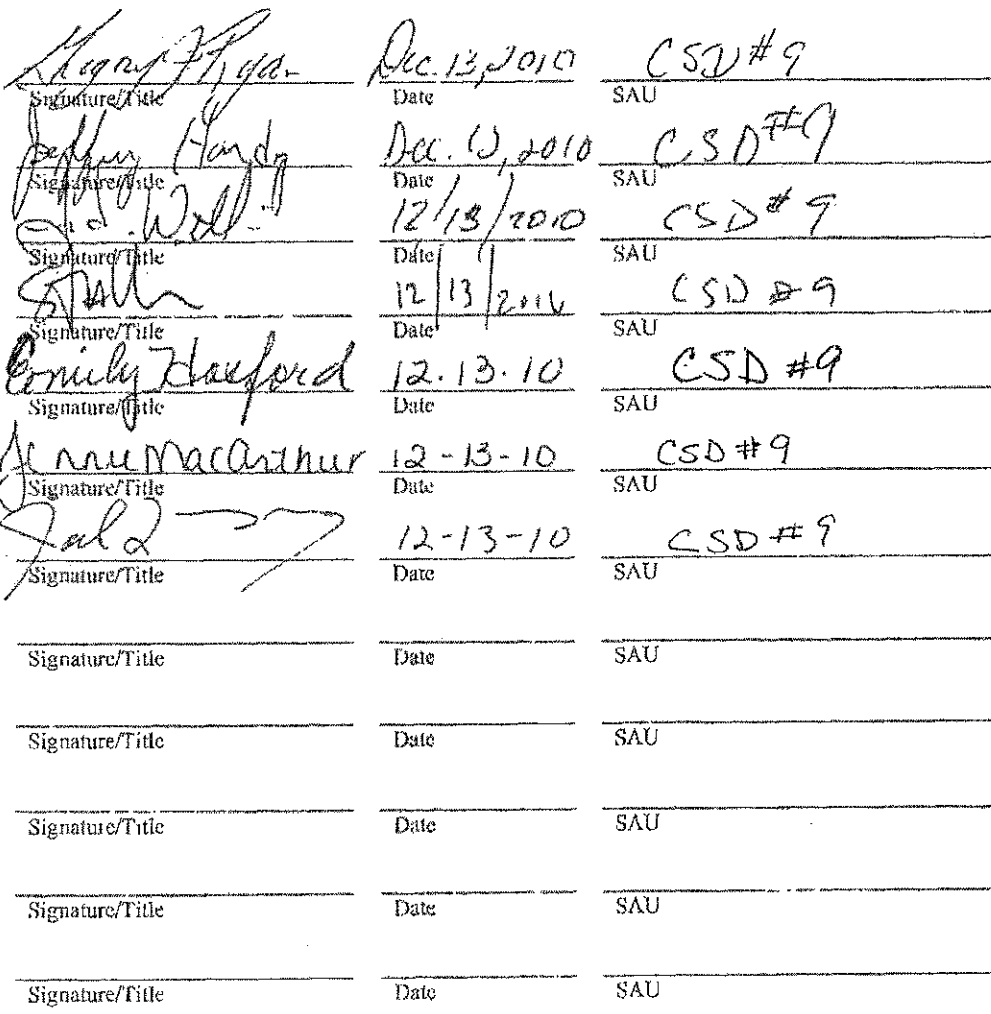 Dec. 13, 2010 CSD #9
Signature/Title Date SAU
Jeffrey Hardy Dec. 13, 2010 CSD #9
Signature/Title Date SAU
12/13/2010 CSD # 9
Signature/Title Date SAU
12/13/2010 CSD # 9
Signature/Title Date SAU
Emily 12.13.10 CSD #9
Signature/Title Date SAU
MacArthur 12-13-10 CSD #9
Signature/Title Date SAU
12-13-10 CSD #9
Signature/Title Date SAU
Signature/Title Date SAU
Signature/Title Date SAU
Signature/Title Date SAU
Signature/Title Date SAU
Signature/Title Date SAU